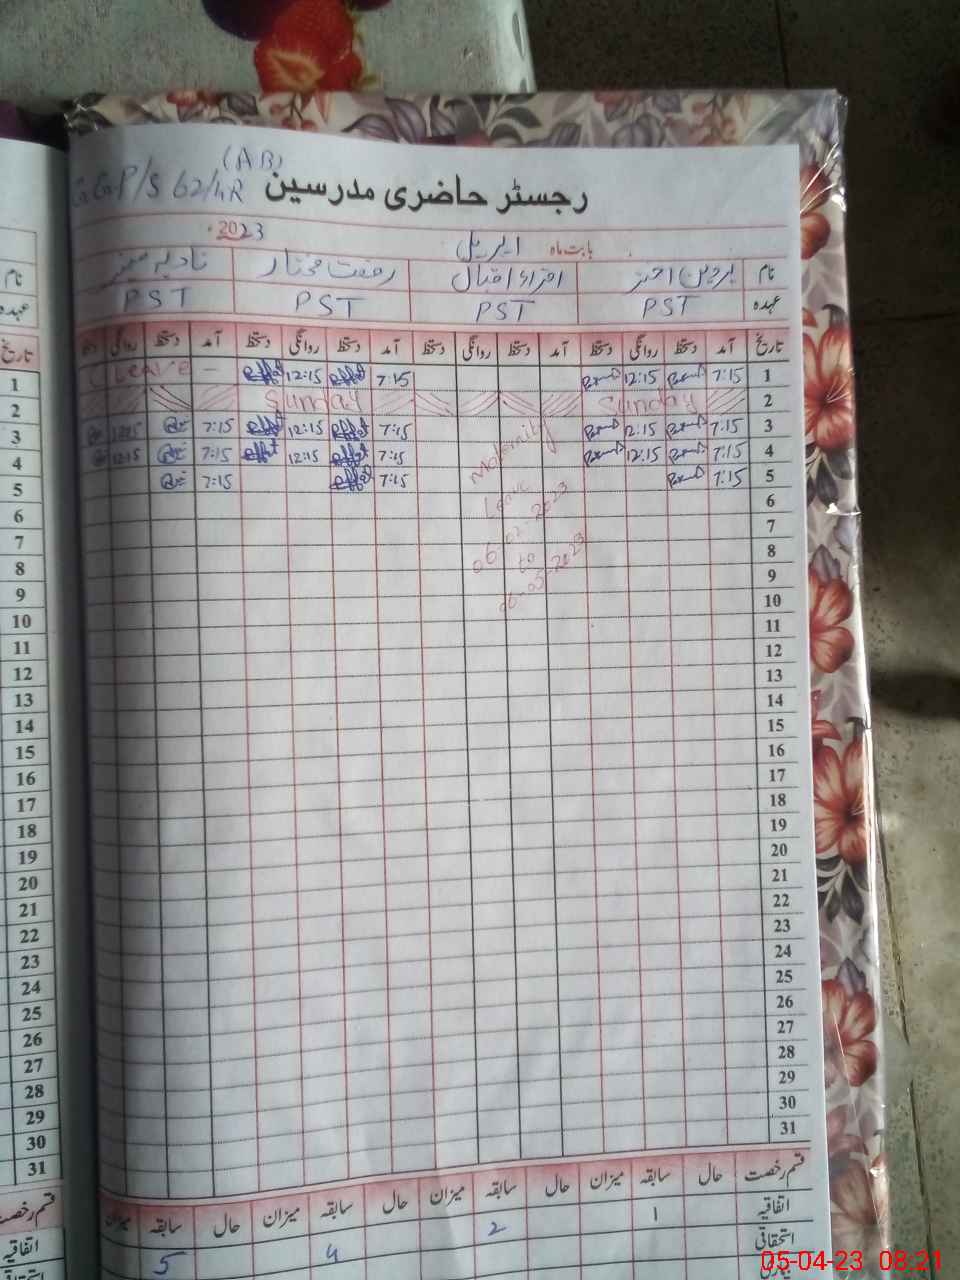 (AB)
GGP/S 62/4R رجسٹر حاضری مدرسین
بابت ماہ اپریل 2023
نام پروین اختر اقراء اقبال رفعت مختار نادیہ
عہدہ PST PST PST PST
تاریخ آمد دستخط روانگی دستخط آمد دستخط روانگی دستخط آمد دستخط روانگی دستخط آمد دستخط روانگی
1 7:15 12:15 7:15 12:15 — Leave
2 Sunday Sunday
3 7:15 12:15 7:15 12:15 7:15
4 7:15 12:15 7:15 12:15 7:15 12:15
5 7:15 7:15 7:15
Maternity
Leave
06-02-2023
to
06-05-2023
6
7
8
9
10
11
12
13
14
15
16
17
18
19
20
21
22
23
24
25
26
27
28
29
30
31
قسم رخصت حال سابقہ میزان حال سابقہ میزان حال سابقہ میزان حال سابقہ میزان
اتفاقیہ 1 2 4 5
استحقاقی
نام
عہدہ
تاریخ
1
2
3
4
5
6
7
8
9
10
11
12
13
14
15
16
17
18
19
20
21
22
23
24
25
26
27
28
29
30
31
قسم رخصت
اتفاقیہ
05-04-23 08:21